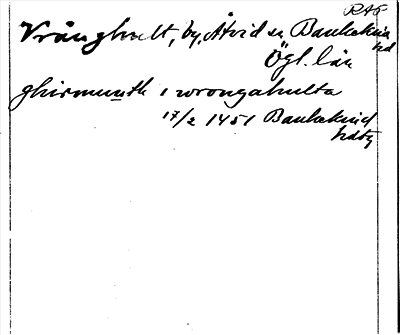 RAÖ
Vrånghult, by, Åtvid sn, Bankekind
hd
Ögl. län
ghirmunth i wrongahulta
17/2 1451 Bankekind
hdtg